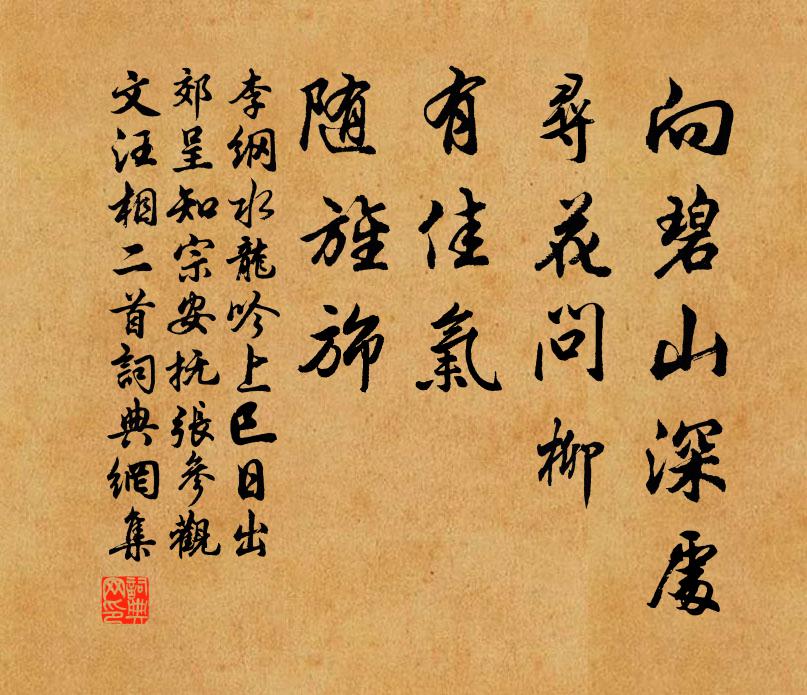 向碧山深處
尋花問柳
有佳氣
随旌斾
李綱水龍吟上巳日出
郊呈知宗安抚張參觀
文汪相二首詞典網集
詞典网印